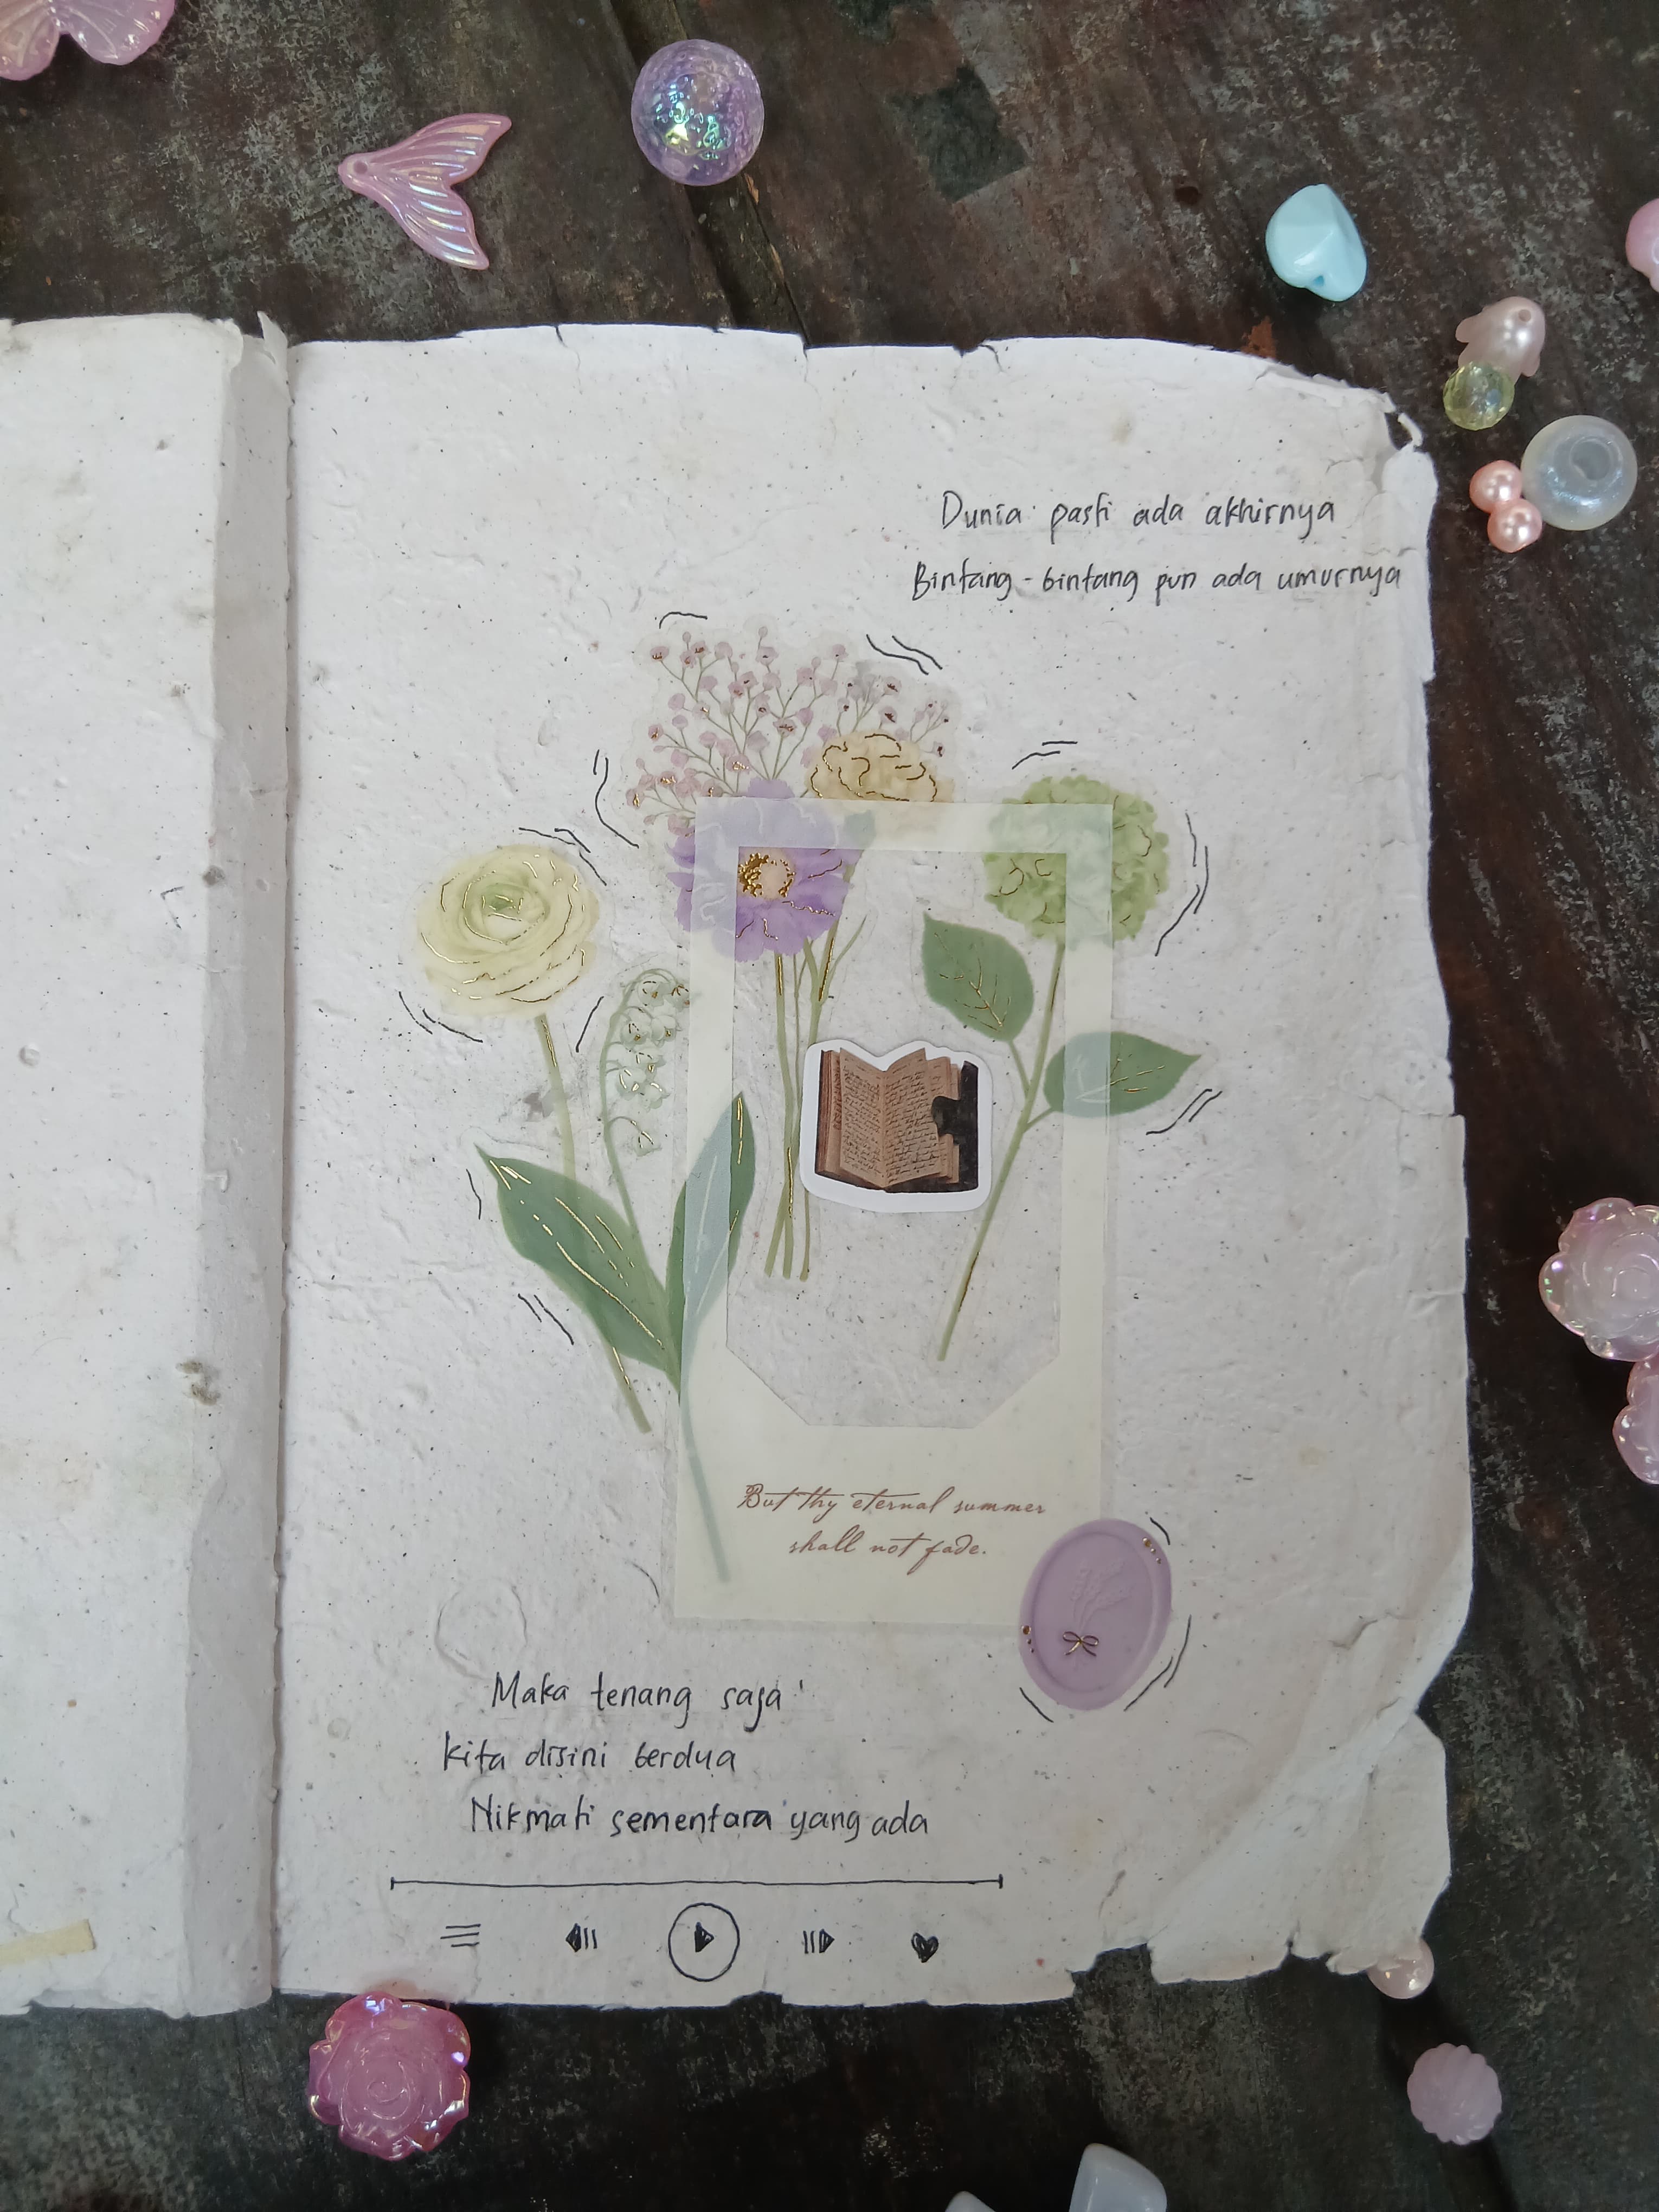 Dunia pasti ada akhirnya
Bintang-bintang pun ada umurnya
But thy eternal summer
shall not fade.
Maka tenang saja
kita disini berdua
Nikmati sementara yang ada